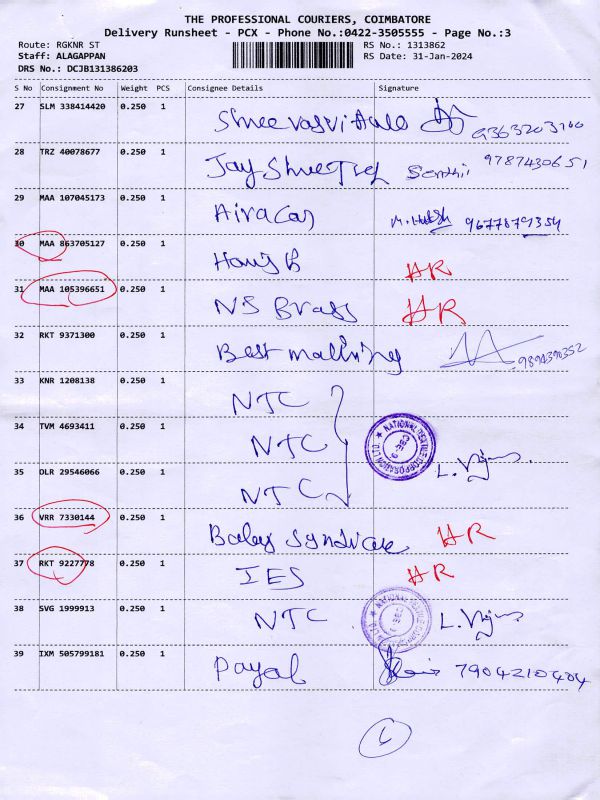 THE PROFESSIONAL COURIERS, COIMBATORE
Delivery Runsheet - PCX - Phone No.:0422-3505555 - Page No.:3
Route: RGKNR ST RS No.: 1313862
Staff: ALAGAPPAN RS Date: 31-Jan-2024
DRS No.: DCJB131386203
S No Consignment No Weight PCS Consignee Details Signature
27 SLM 338414420 0.250 1
28 TRZ 40078677 0.250 1 Senthil 9787430651
29 MAA 107045173 0.250 1
30 MAA 863705127 0.250 1 HR
31 MAA 105396651 0.250 1 NS Brass HR
32 RKT 9371300 0.250 1 Best
33 KNR 1208138 0.250 1 NTC
34 TVM 4693411 0.250 1 NTC NATIONAL TEXTILE CORPORATION LTD.
35 DLR 29546066 0.250 1 NTC
36 VRR 7330144 0.250 1 HR
37 RKT 9227778 0.250 1 IES HR
38 SVG 1999913 0.250 1 NTC
39 IXM 505799181 0.250 1 Payal 7904210404